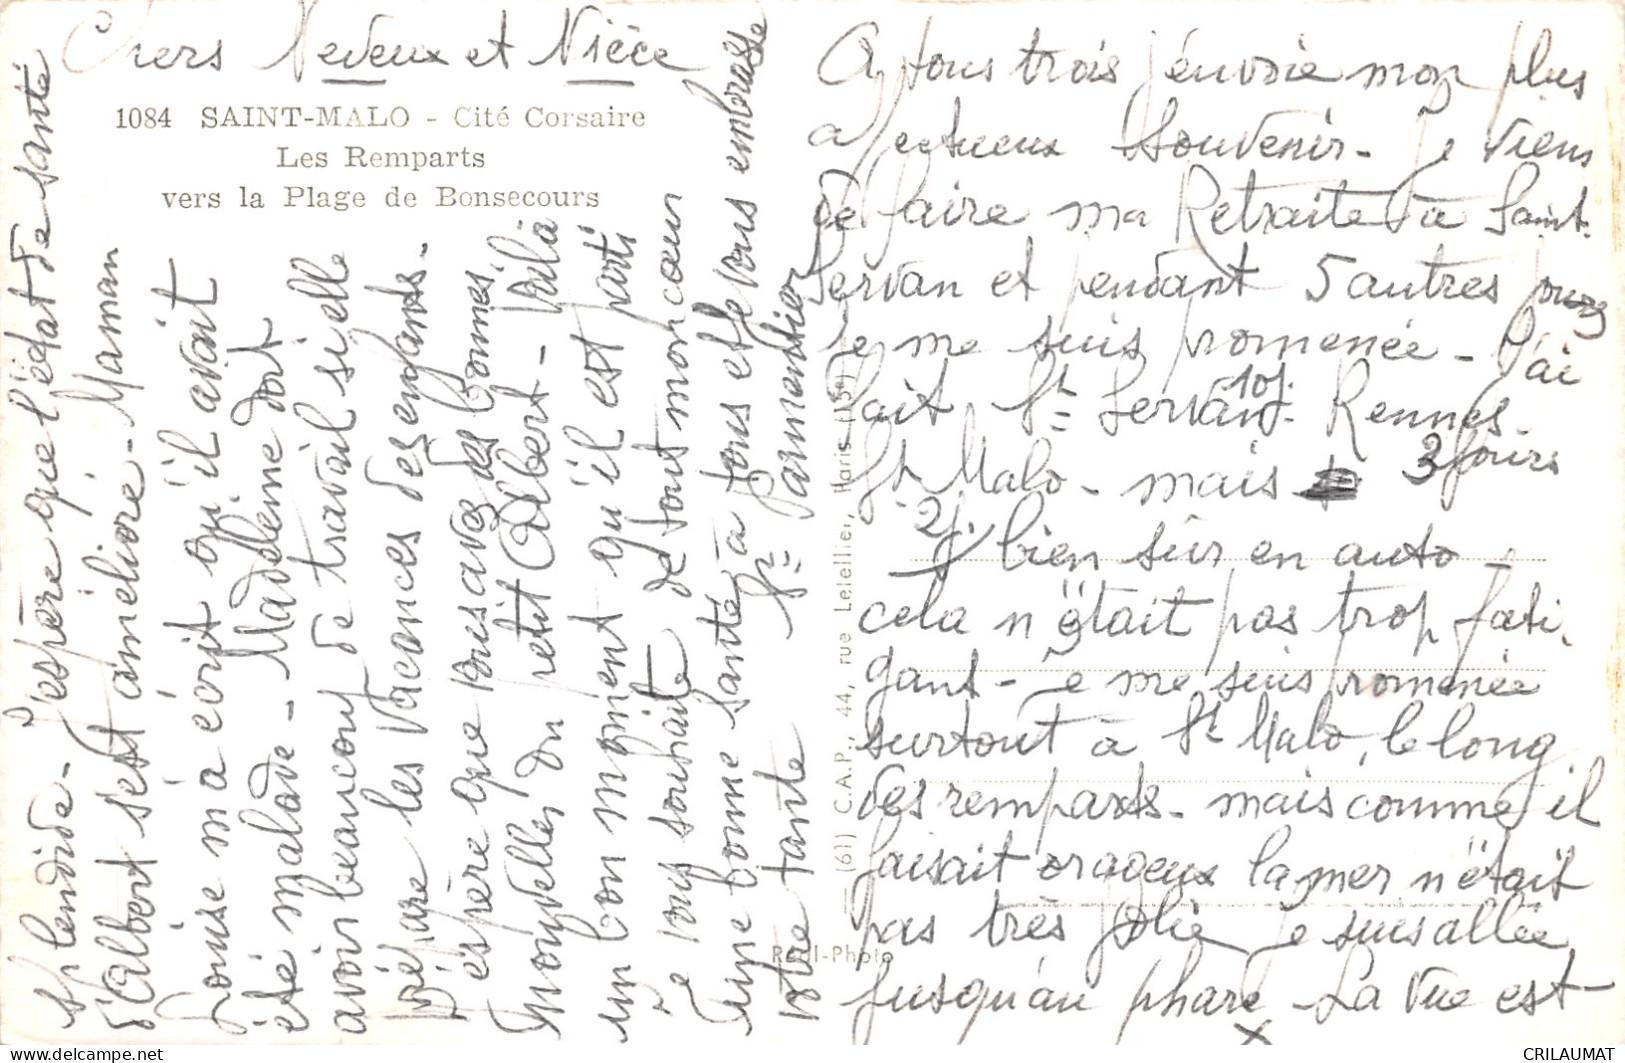 Chers Neveux et Nièce
1084 SAINT-MALO - Cité Corsaire
Les Remparts
vers la Plage de Bonsecours
A tous trois j'envoie mon plus
affectueux Souvenir - Je viens
de faire ma Retraite à Saint.
Servan et pendant 5 autres jours
Je me suis promenée - J'ai
fait St Servan 10j. Rennes.
St Malo - mais 3 Jours
2j. bien sûr en auto
cela n'était pas trop fati.
gant - Je me suis promenée
surtout à St Malo, le long
des remparts - mais comme il
faisait orageux la mer n'était
pas très jolie Je suis allée
jusqu'au phare - La Vue est
x
splendide - J'espère que l'état de santé
d'Albert s'est améliorée - Maman
Louise m'a écrit qu'il avait
été malade - Madeleine doit
avoir beaucoup de travail si elle
prépare les Vacances des enfants -
J'espère que vous avez des bonnes
nouvelles du petit Albert - Voilà
un bon moment qu'il est parti
Je vous souhaite de tout mon cœur
une bonne santé à tous et je vous embrasse
votre tante St Parmentier
(61) C.A.P., 44, rue Letellier, Paris (15e)
Real-Photo
CRILAUMAT